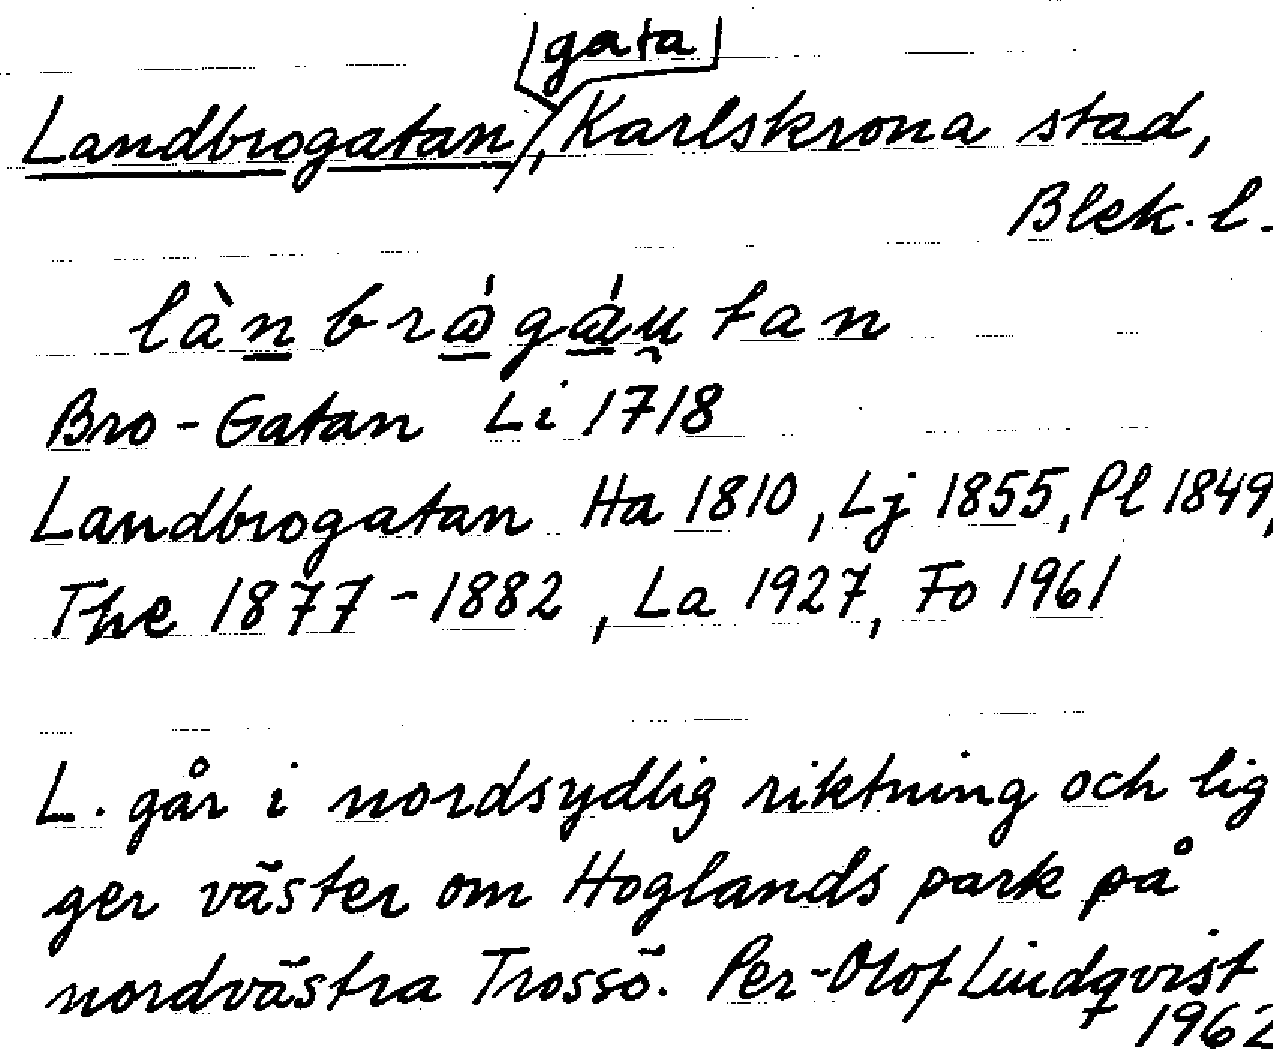 gata
Landbrogatan, Karlskrona stad,
Blek. l.
Bro-Gatan Li 1718
Landbrogatan Ha 1810, Lj 1855, Pl 1849,
The 1877-1882, La 1927, Fo 1961
L. går i nordsydlig riktning och lig
ger väster om Hoglands park på
nordvästra Trossö. Per-Olof Lindqvist
1962